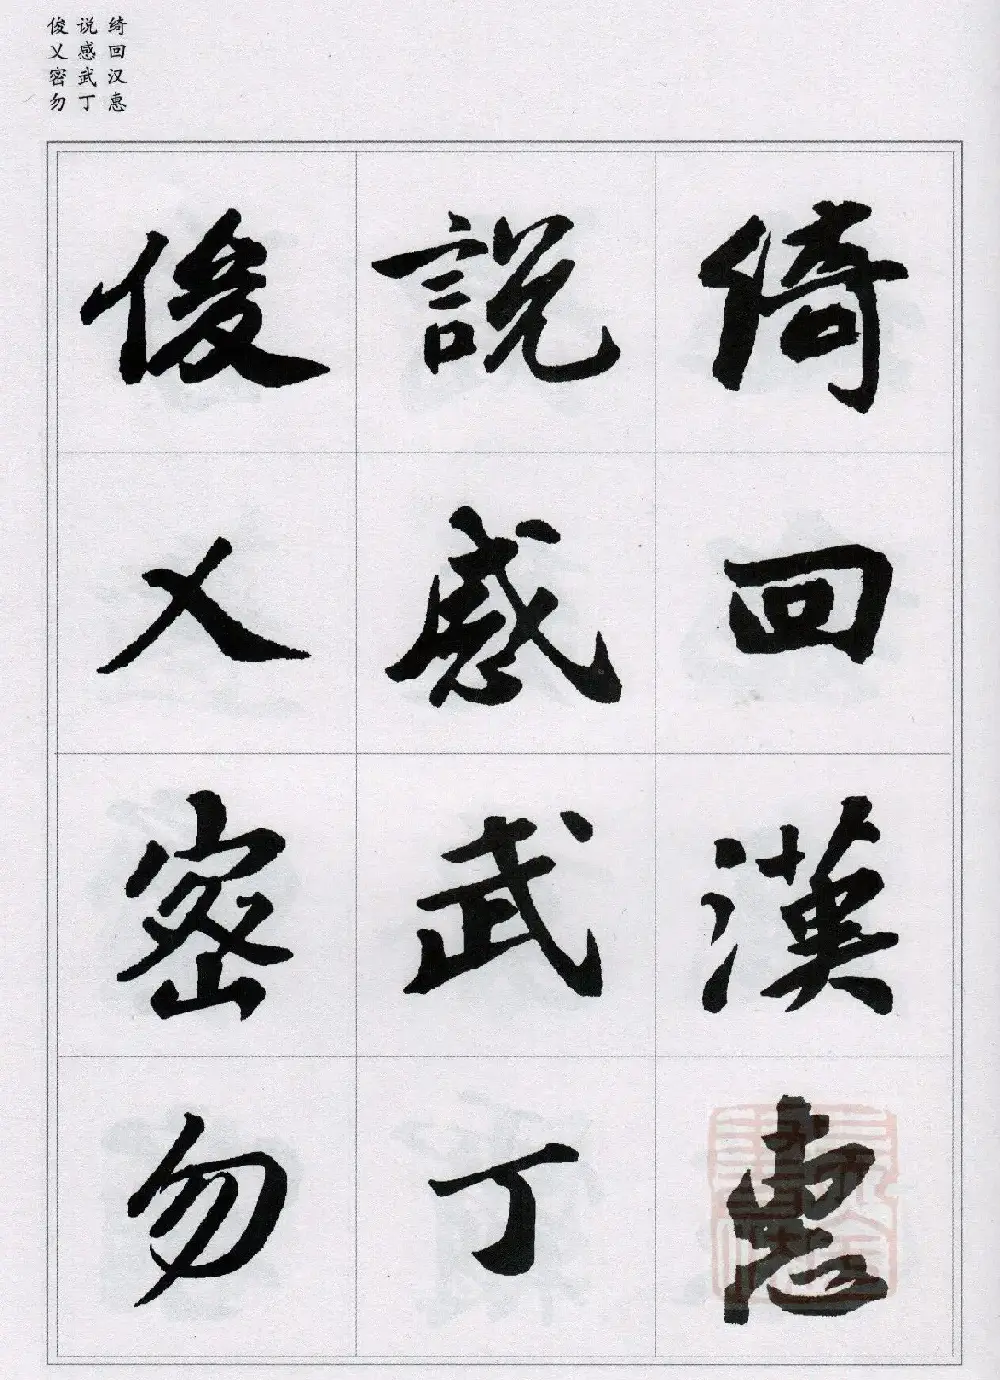 绮回汉惠
说感武丁
俊乂密勿
綺回漢惠
說感武丁
俊乂密勿